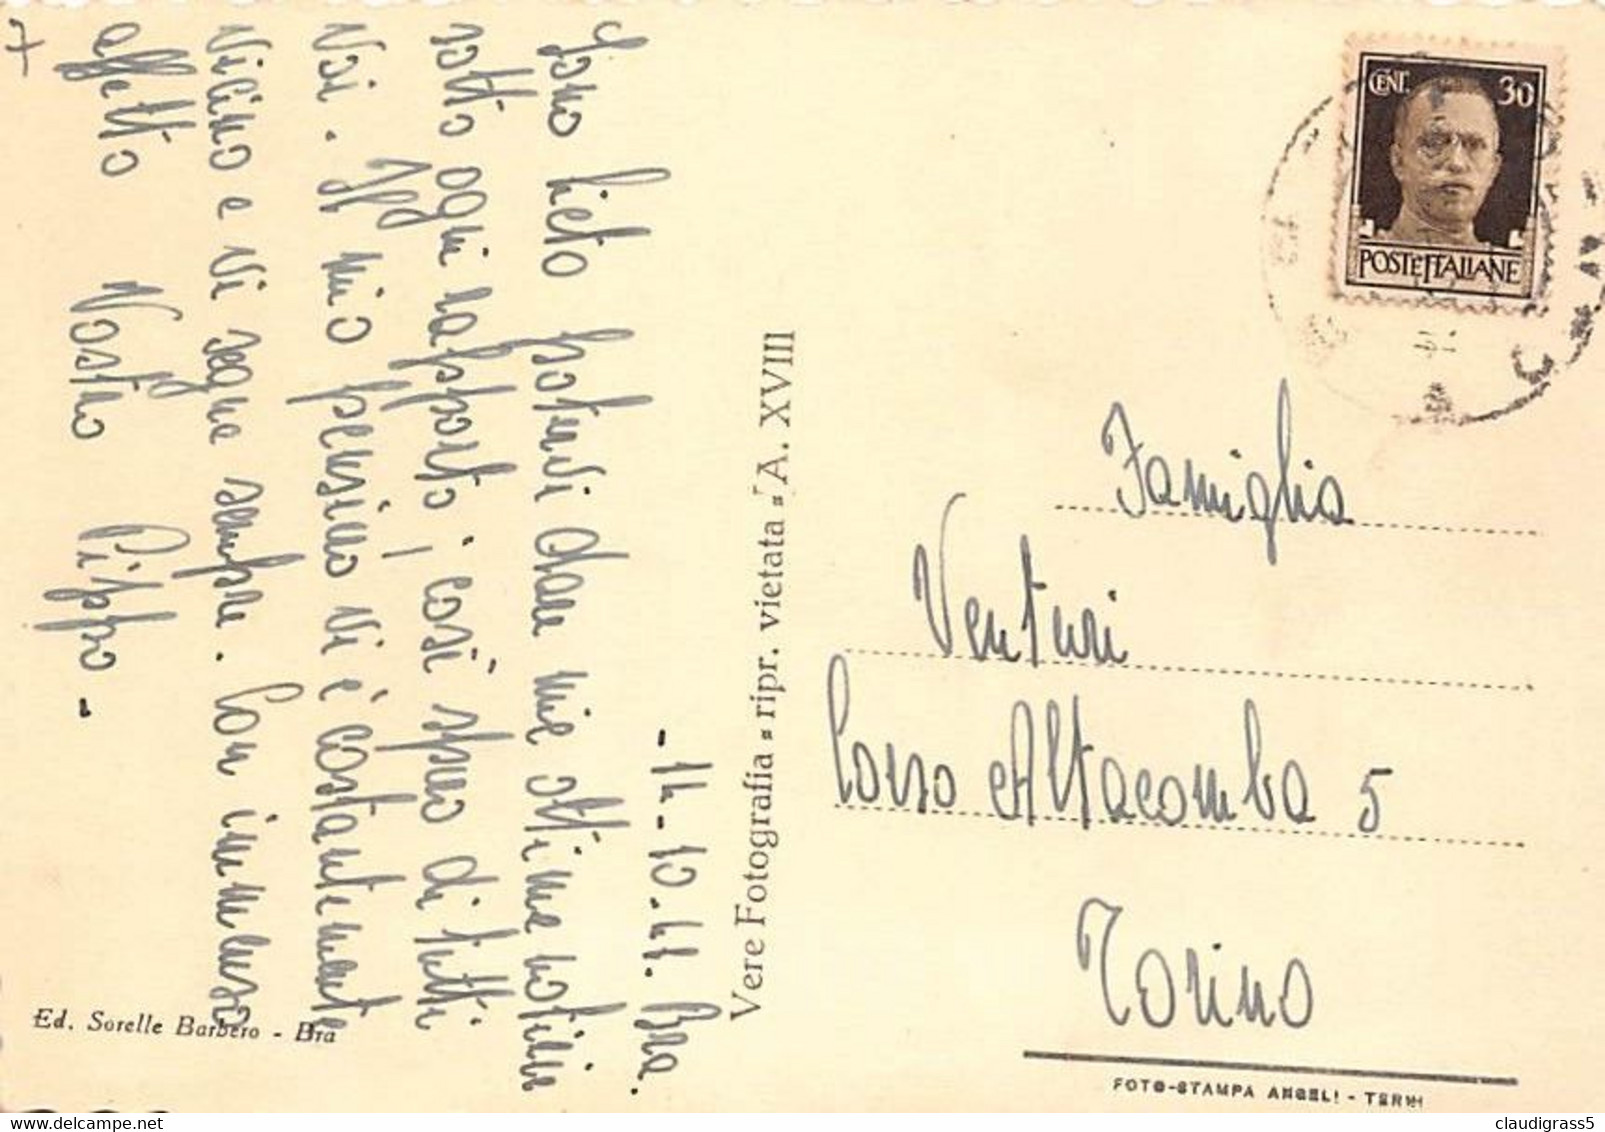 - 14-10-41. Bra.
Sono lieto potervi dare mie ottime notizie
sotto ogni rapporto; così spero di tutti
Voi. Il mio pensiero vi è costantemente
vicino e vi segue sempre. Con immenso
affetto Vostro Pippo -
7
Ed. Sorelle Barbero - Bra
Vere Fotografia - ripr. vietata - A. XVIII
CENT. 30
POSTE ITALIANE
Famiglia
Venturi
Corso Altacomba 5
Torino
FOTO-STAMPA ANGELI - TERNI
claudigrass5